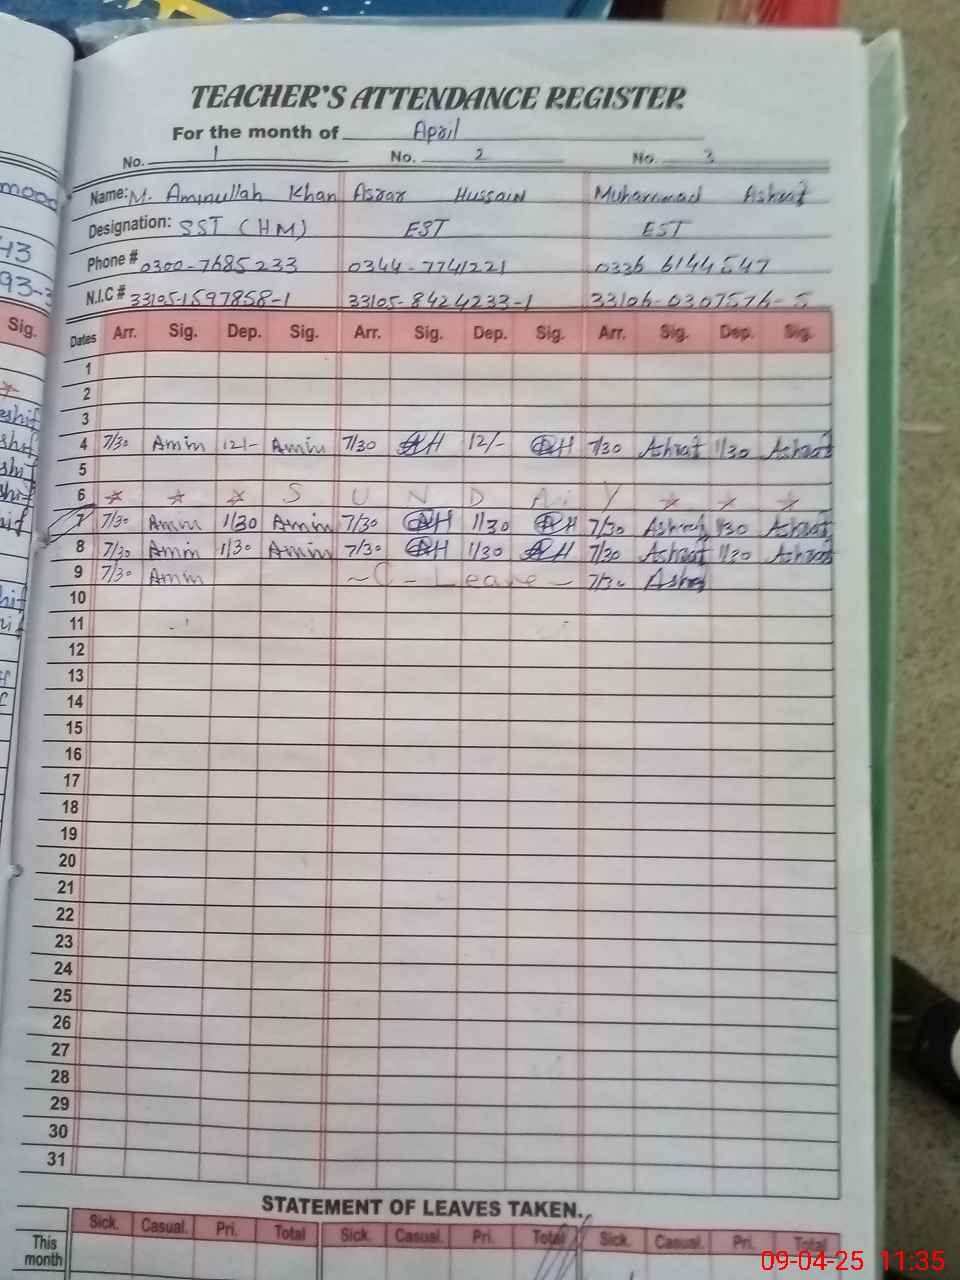 TEACHER'S ATTENDANCE REGISTER
For the month of April
No. 1 No. 2 No. 3
Name: M. Aminullah Khan Asrar Hussain Muhammad Ashraf
Designation: SST (HM) EST EST
Phone # 0300-7685233 0344-7741221 0336 6144547
N.I.C # 33105-1597858-1 33105-8424233-1 33106-0307576-5
Dates Arr. Sig. Dep. Sig. Arr. Sig. Dep. Sig. Arr. Sig. Dep. Sig.
1
2
3
4 7/30 Amin 12/- Amin 7/30 AH 12/- AH 7/30 Ashraf 1/30 Ashraf
5
6 S U N D A Y
7 7/30 Amin 1/30 Amin 7/30 AH 1/30 AH 7/30 Ashraf 1/30 Ashraf
8 7/30 Amin 1/30 Amin 7/30 AH 1/30 AH 7/30 Ashraf 1/30 Ashraf
9 7/30 Amin ~ C - Leave ~ 7/30 Ashraf
10
11
12
13
14
15
16
17
18
19
20
21
22
23
24
25
26
27
28
29
30
31
STATEMENT OF LEAVES TAKEN.
Sick. Casual. Pri. Total Sick. Casual. Pri. Total Sick. Casual. Pri. Total
This
month
09-04-25 11:35